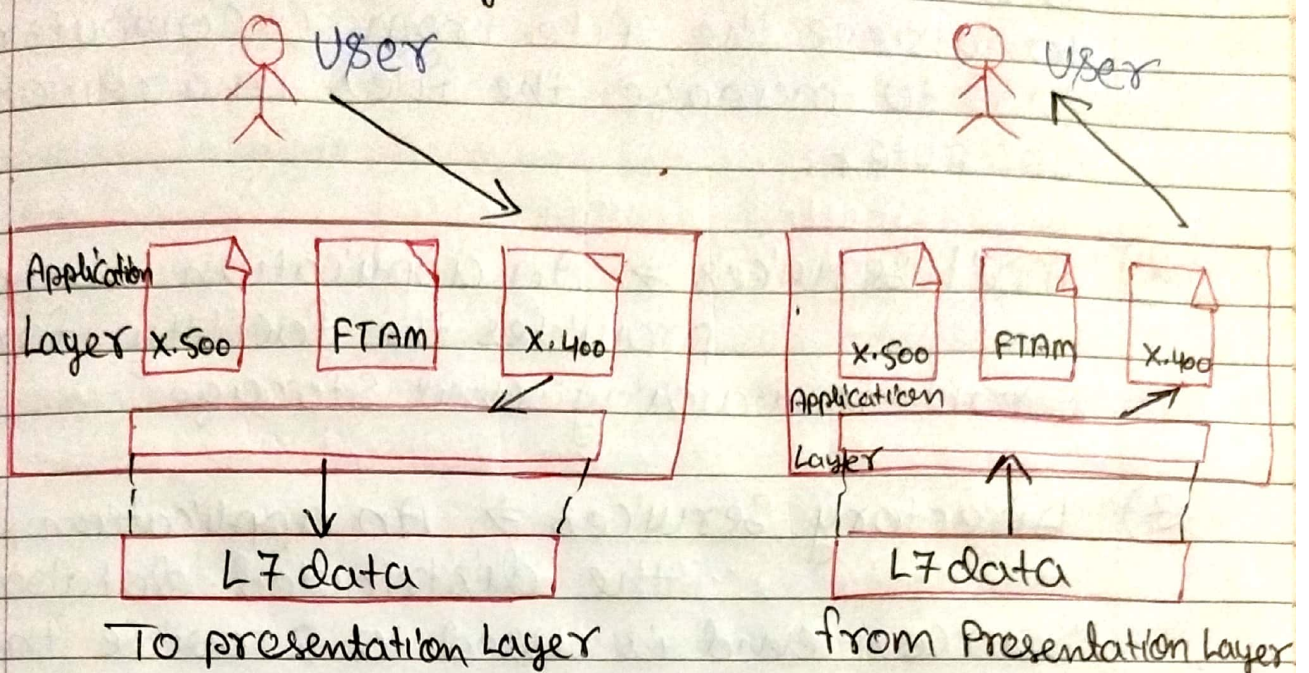 User
User
Application
Layer
X.500
FTAM
X.400
X.500
FTAM
X.400
Application
Layer
L7 data
L7 data
To presentation Layer
from Presentation Layer